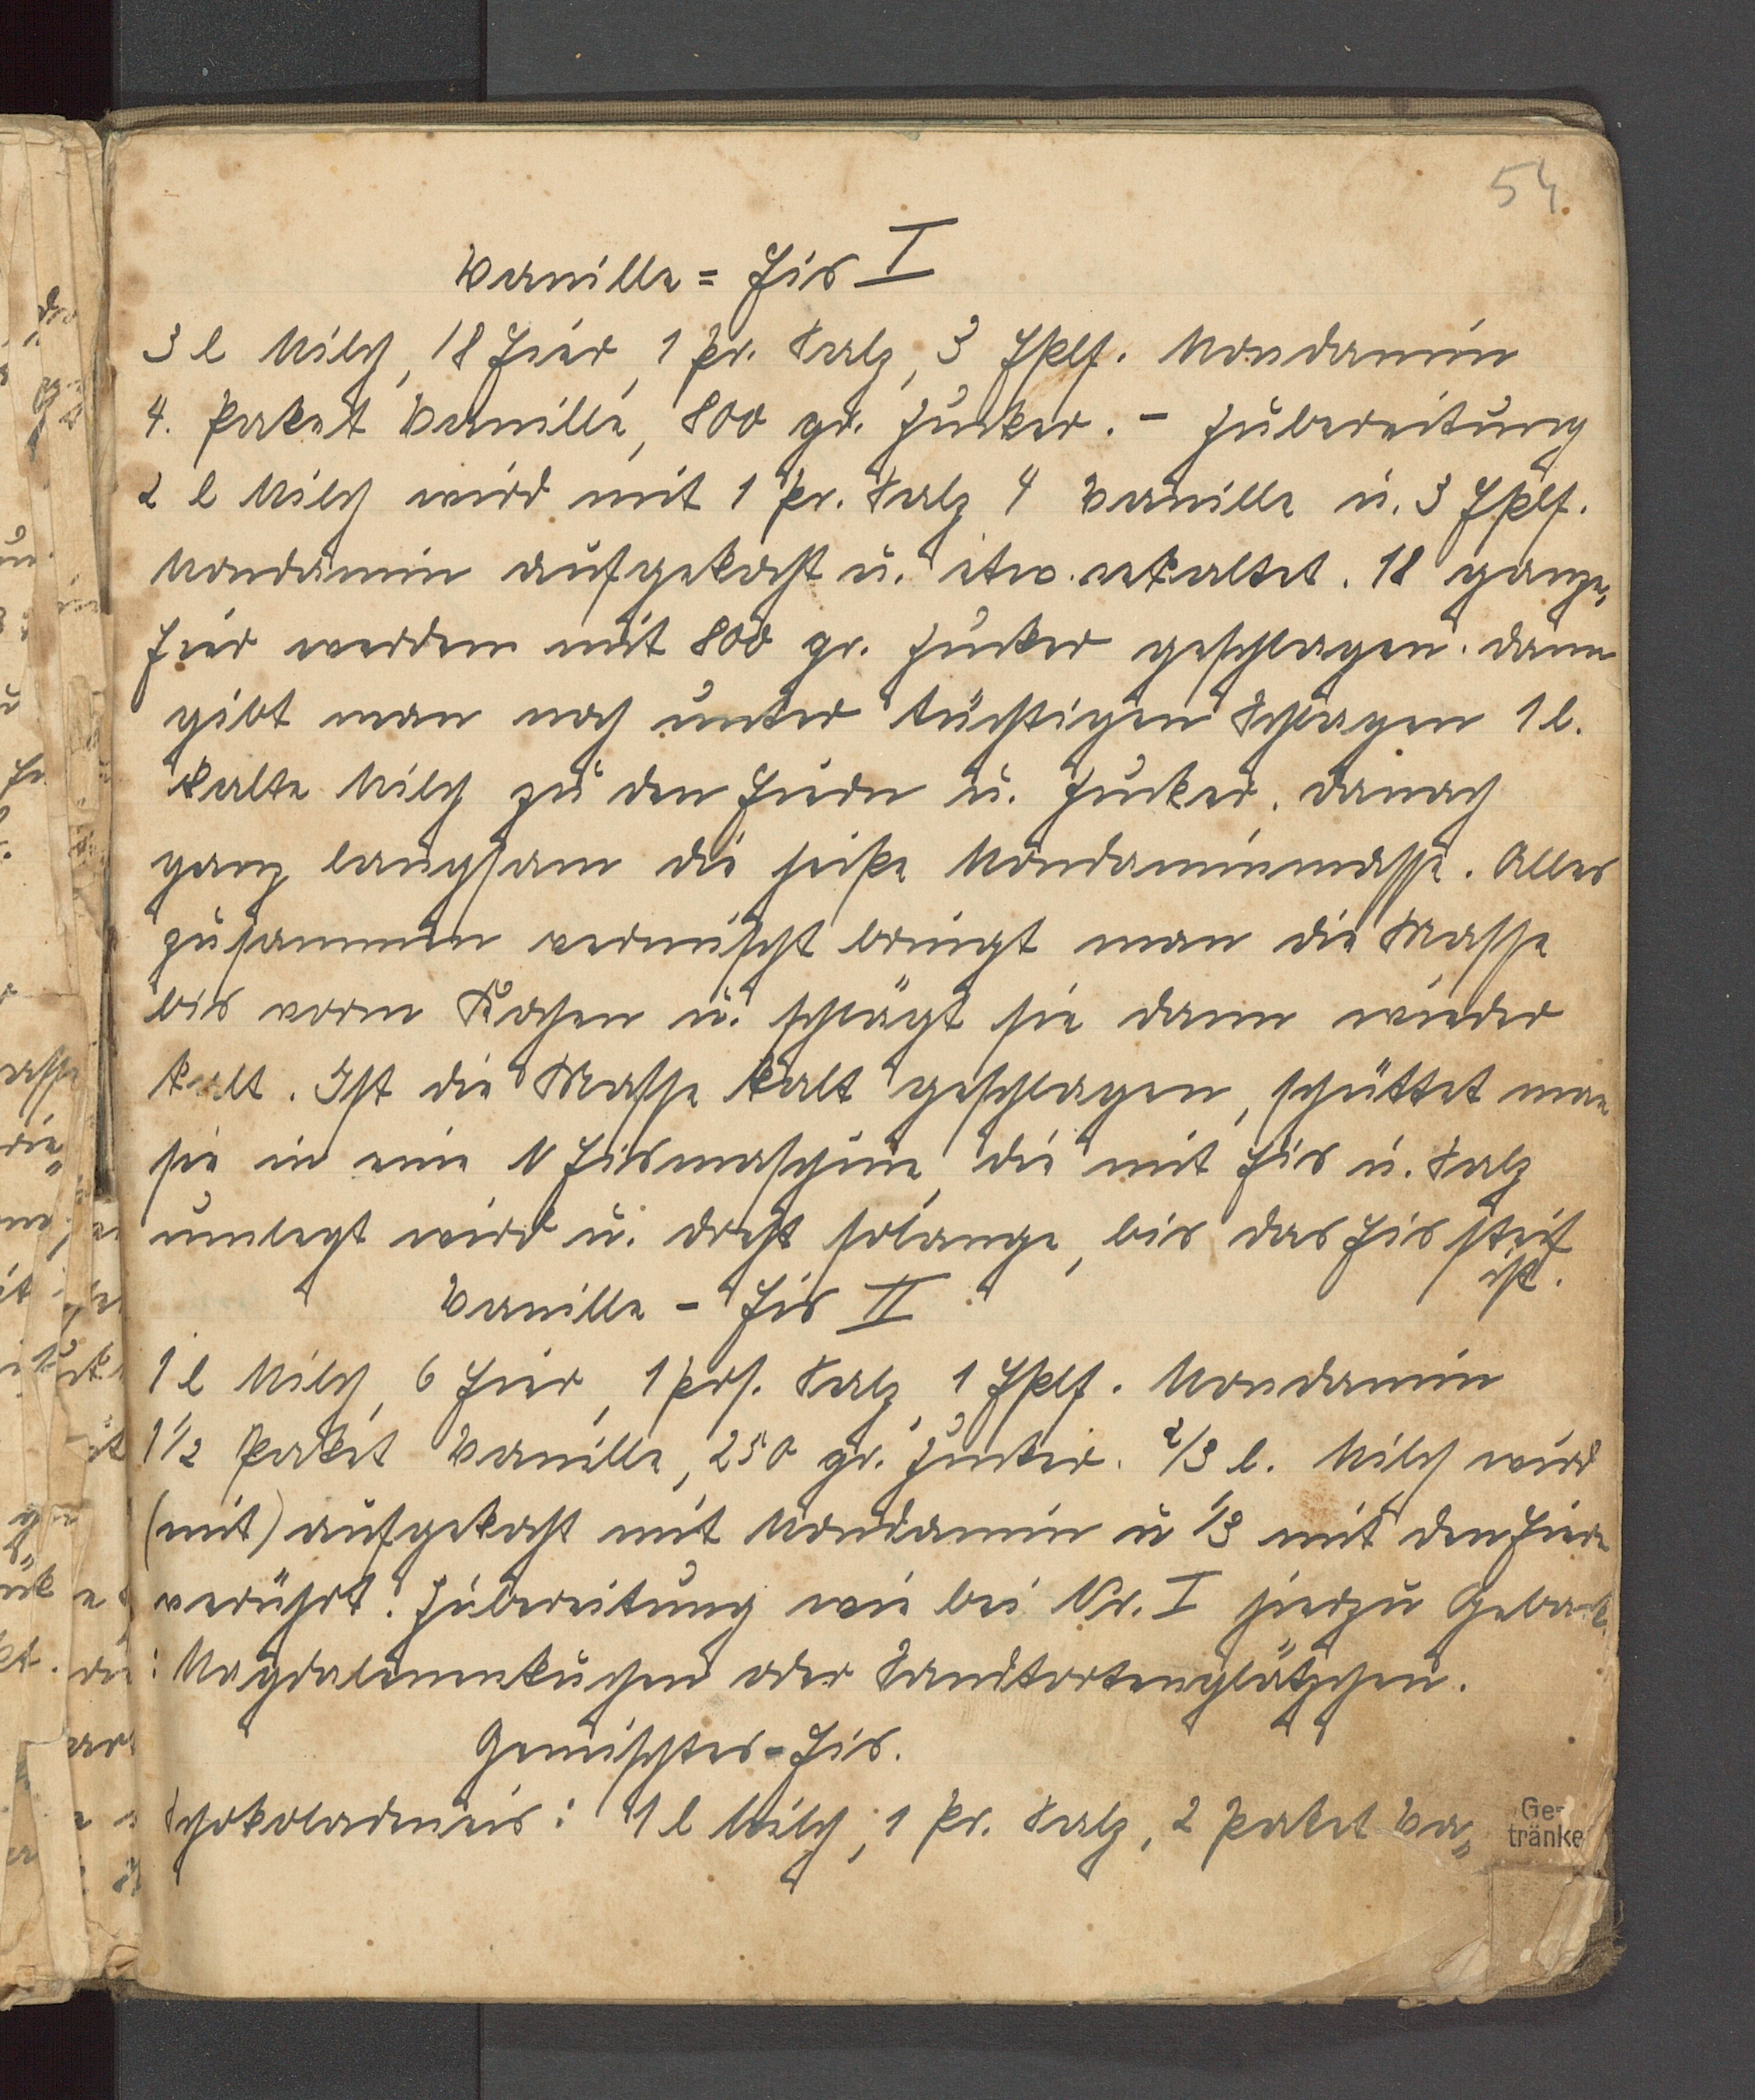 54.
Vanille= Eis I
3 l Milch, 18 Eier, 1 Pr. Salz, 3 Eßlf. Mondamin
4. Paket Vanille, 800 gr. Zucker. - Zubereitung
2 l Milch wird mit 1 Pr. Salz 4 Vanille u. 3 Eßlf.
Mondamin aufgekocht u. etw. erkaltet. 18 ganze,
Eier werden mit 800 gr. Zucker geschlagen. dann
gibt man noch unter tüchtigen Schlagen 1 l.
kalte Milch zu den Eiern u. Zucker. danach
ganz langsam die heiße Mondaminmasse. Alles
zusammen vermischt bringt man die Masse
bis vorm Kochen u. schlägt sie dann wieder
kalt. Ist die Masse kalt geschlagen, schüttet man
sie in eine Eismaschine, die mit Eis u. Salz
umlegt wird u. dreht solange, bis das Eis steif
ist.
Vanille - Eis II
1 l Milch, 6 Eier, 1 Prs. Salz, 1 Eßlf. Mondamin
1 1/2 Paket Vanille, 250 gr. Zucker. 2/3 l. Milch wird
(mit) aufgekocht mit Mondamin u 1/3 mit den Eiern
verührt. Zubereitung wie bei Nr. I hierzu Geback
: Magdalenenkuchen oder Sandtortenplätzchen.
Gemischtes-Eis.
Schokoladeneis: 1 l Milch, 1 Pr. Salz, 2 Paket Va=
Ge-
tränke